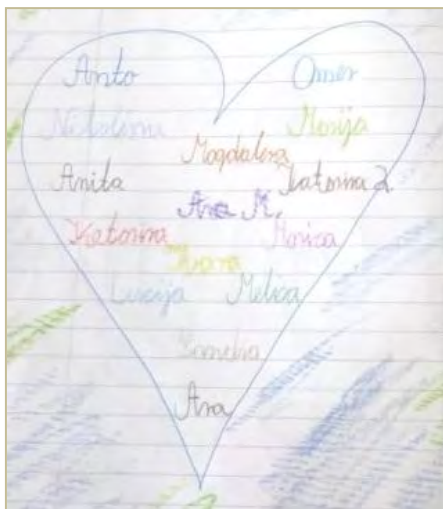 Anto Omer
Nikolina Marija
Magdalena
Anita Katarina 2.
Ana M.
Katarina Marica
Ivana
Lucija Melica
Sandra
Ana